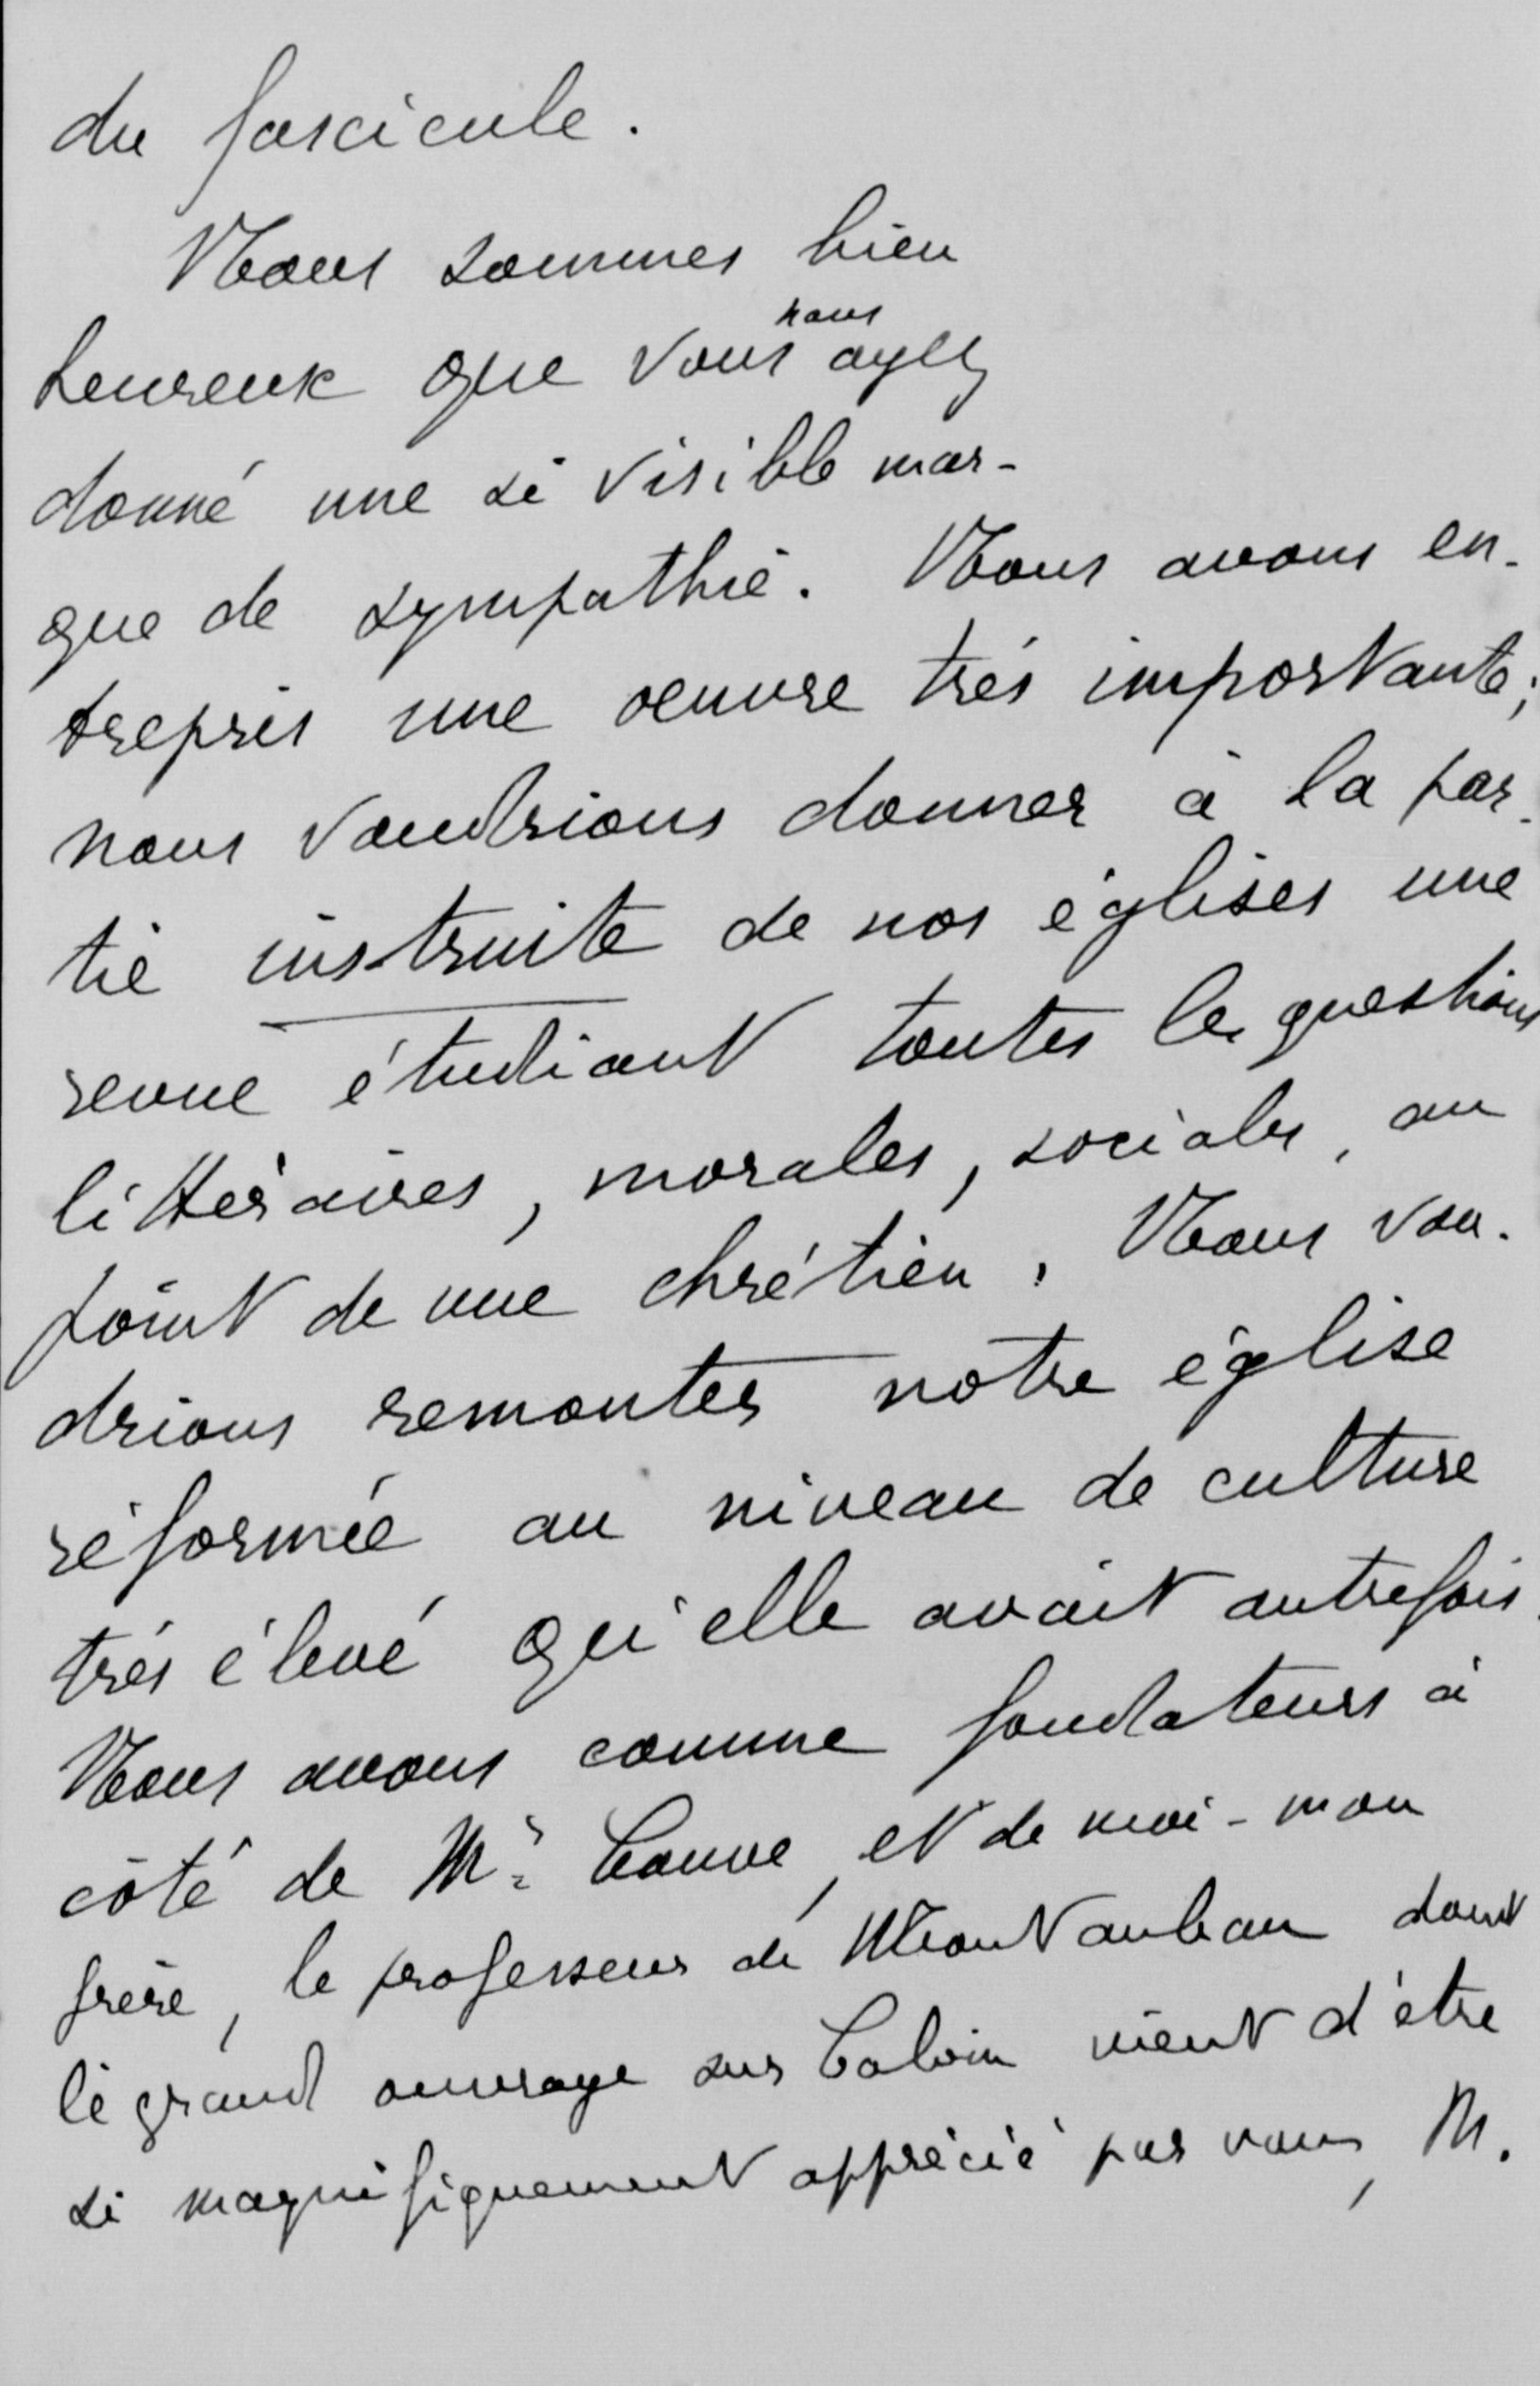 du fascicule.
Nous sommes bien
heureux que vous nous ayez
donné une si visible mar-
que de sympathie. Nous avons en-
trepris une oeuvre très importante;
nous voudrions donner à la par-
tie instruite de nos églises une
revue étudiant toutes les questions
littéraires, morales, sociales, au
point de vue chrétien. Nous vou-
drions remonter notre église
réformée au niveau de culture
très élevé qu'elle avait autrefois.
Nous avons comme fondateurs à
côté de Mr. Couve, et de moi-mon
frère, le professeur de Montauban dont
le grand ouvrage sur Calvin vient d'être
si magnifiquement apprécié par vous, M.